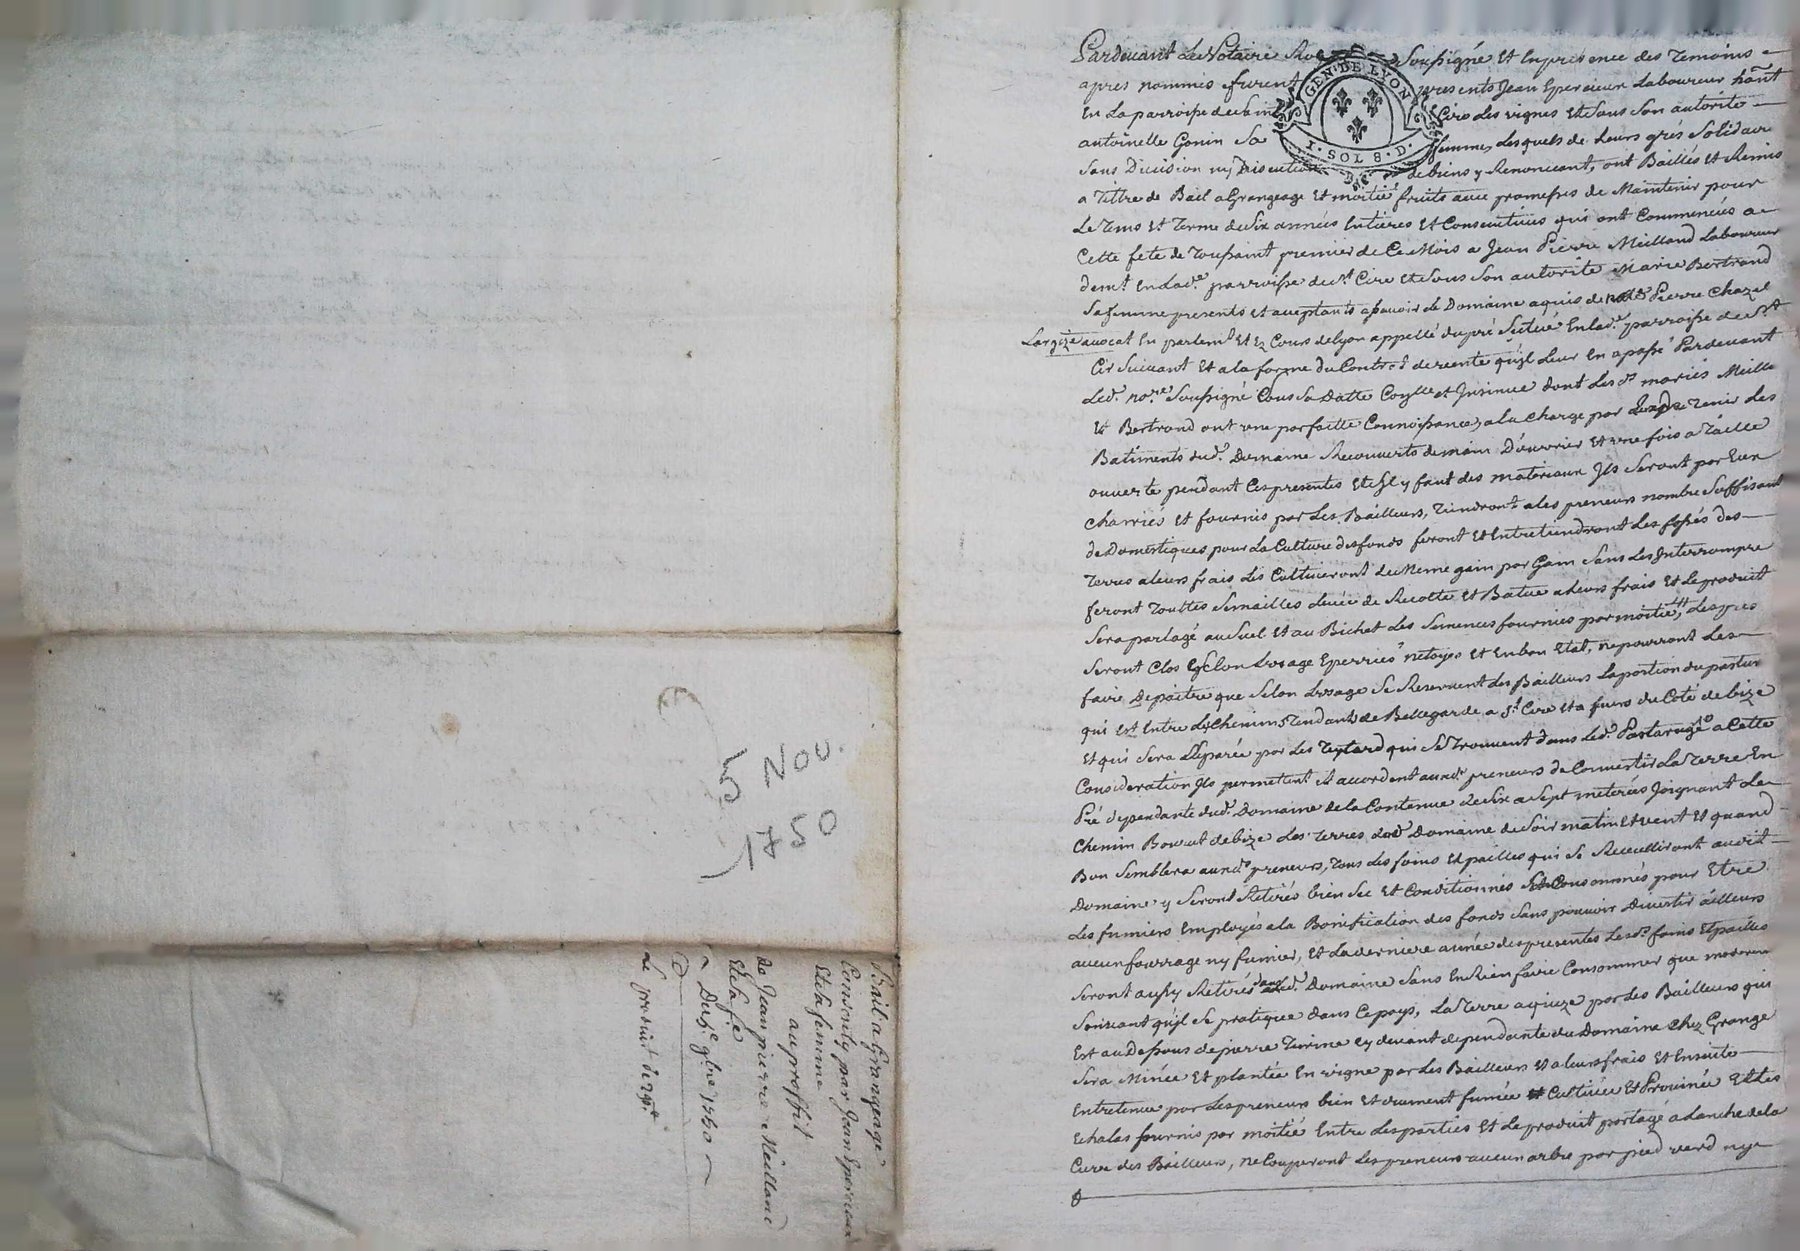 5 Nov.
1750
Bail a Grangeage
Consenty par Jean Epercieux
Et sa femme
au proffit
de Jean pierre Meilland
Et sa fe
Du 5e 9bre 1750
Le produit de
Pardevant Le Notaire Ro Soussigné Et En presence des Temoins
apres nommés furent presents Jean Epercieux Laboureur habnt
En La parroisse de Saint Cire Les vignes Et Sous Son autorité
antoinette Gonin Sa femme, Lesquels de Leurs grés Solidaire
Sans Division ny Discution de biens y Renoncant, ont Baillés Et Remis
a Tiltre de Bail a Grangeage Et moitié fruits avec promesses de Maintenir pour
Le Tems et Terme de Six années Entieres Et Consecutives qui ont Commencées a
Cette fete de Toussaint premier de Ce Mois a Jean Pierre Meilland Laboureur
demt. En Lade. parroisse de St. Cire Et Sous Son autorité Marie Bertrand
Sa femme presents et acceptants a Scavoir Le Domaine aquis de Pierre Chazel
avocat En parlemt. Et Ez Cours de Lyon appellé du pré Scitué En lade. parroisse de St
Cir Suivant Et a la forme du Contract de vente qu'il Leur En a passé Pardevant
Led. nore. Soussigné Sous Sa Datte Controllé et Insinué dont Les ds. mariés Meilla
Et Bertrand ont une parfaitte Connoissance, a la Charge par de Tenir Les
Batiments dud. Domaine Recouverts de main D'ouvrier Et une fois a Taille
ouverte pendant Ces presentes Et S'il y faut des materiaux Ils Seront par Eux
Charriés Et fournis par Les Bailleurs, Tiendront a Les preneurs nombre Suffisant
de Domestiques pour La Culture des fonds feront Et Entretiendront Les fossés des
Terres a leurs frais Les Cultiveront de Meme gain par Gain Sans Les Interrompre
feront Touttes Semailles Levée de Recolte Et Batue a Leurs frais Et Le produit
Sera partagé au Suel Et au Bichet Les Semences fournies par moitié, Les prés
Seront Clos Selon Lusage Eperriés netoyés Et En bon Etat, ne pourront Les
faire Depaitre que Selon Lusage Se Reservent Les Bailleurs La portion du pastur
qui Est Entre Les Chemins Tendants de Bellegarde a St. Cire Et a feurs du Coté de bize
Et qui Sera Separée par Les qui Se Trouvent dans Led. Pasturage a Cette
Consideration Ils permettent Et accordent auxd. preneurs de Convertir La Terre En
Pré dependante dud. Domaine de la Contenue de Six a Sept meterées Joignant Le
Chemin de bize Les Terres dud. Domaine de Soir matin Et vent Et quand
Bon Semblera auxd. preneurs, Tous Les foins Et pailles qui Se Recueilliront audit
Domaine y Seront Retirés bien Sec Et Conditionnés Et Consommés pour Etre
Les fumiers Employés a la Bonification des fonds Sans pouvoir Divertir ailleurs
aucun fourrage ny fumier, Et La derniere année des presentes Lesds. foins Et pailles
Seront aussy Retirés dans Led. Domaine Sans En Rien faire Consommer que moderem
Suivant qu'il Se pratique dans Ce pays, La Terre aquize par Les Bailleurs qui
Est au Dessous de pierre cy devant dependante du Domaine Chez Grange
Sera Minée Et plantée En vigne par Les Bailleurs Et a leurs frais Et Ensuite
Entretenue par Les preneurs bien Et duement fumée Cultivée Et Provinée Et Les
Echalas fournis par moitié Entre Les parties Et Le produit partagé a Lanche de la
Cuve des Bailleurs, ne Couperont Les preneurs aucun arbre par pied verd ny
GEN. DE LYON
1. SOL 8. D.